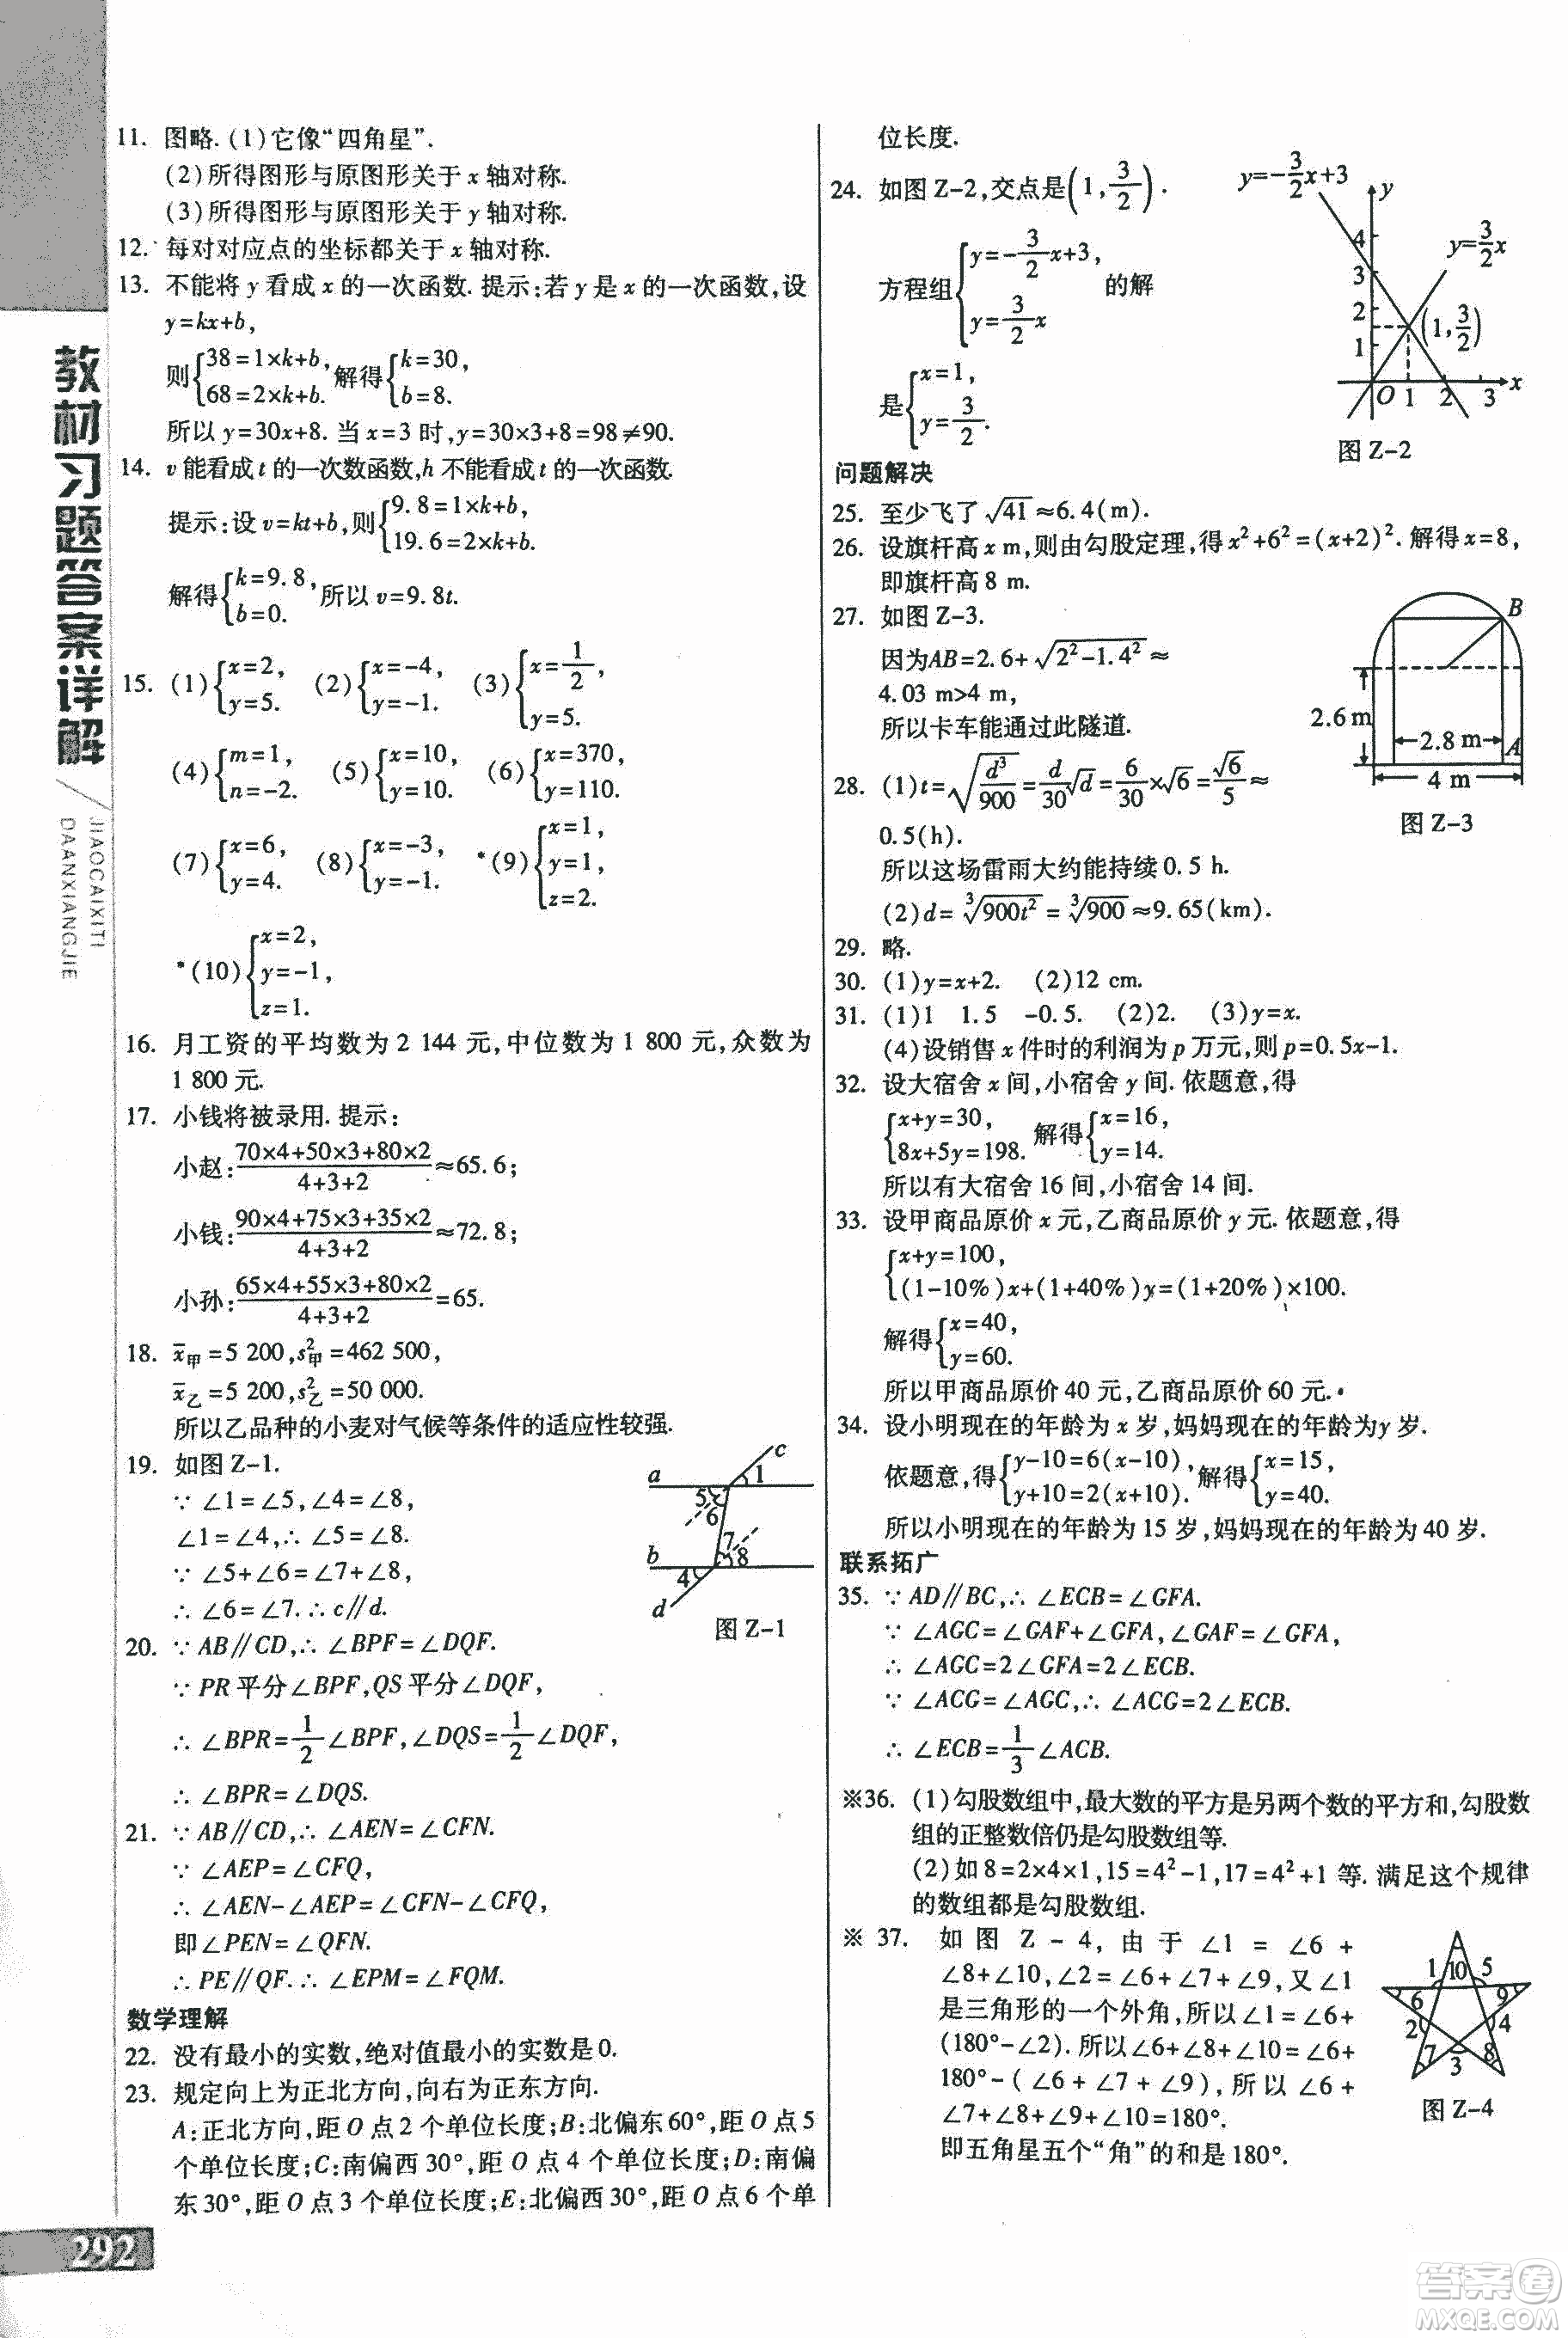 教材习题答案详解
JIAOCAIXITI
DAANXIANGJIE
11. 图略. (1)它像“四角星”.
(2)所得图形与原图形关于 x 轴对称.
(3)所得图形与原图形关于 y 轴对称.
12. 每对对应点的坐标都关于 x 轴对称.
13. 不能将 y 看成 x 的一次函数. 提示:若 y 是 x 的一次函数,设
y=kx+b,
则{38=1×k+b, 68=2×k+b. 解得{k=30, b=8.
所以 y=30x+8. 当 x=3 时,y=30×3+8=98≠90.
14. v 能看成 t 的一次数函数,h 不能看成 t 的一次函数.
提示:设 v=kt+b,则{9.8=1×k+b, 19.6=2×k+b.
解得{k=9.8, b=0. 所以 v=9.8t.
15. (1){x=2, y=5. (2){x=-4, y=-1. (3){x=1/2, y=5.
(4){m=1, n=-2. (5){x=10, y=10. (6){x=370, y=110.
(7){x=6, y=4. (8){x=-3, y=-1. *(9){x=1, y=1, z=2.
*(10){x=2, y=-1, z=1.
16. 月工资的平均数为 2 144 元,中位数为 1 800 元,众数为
1 800 元.
17. 小钱将被录用. 提示:
小赵:(70×4+50×3+80×2)/(4+3+2)≈65.6;
小钱:(90×4+75×3+35×2)/(4+3+2)≈72.8;
小孙:(65×4+55×3+80×2)/(4+3+2)=65.
18. x̄甲=5 200,s²甲=462 500,
x̄乙=5 200,s²乙=50 000.
所以乙品种的小麦对气候等条件的适应性较强.
19. 如图 Z-1.
∵ ∠1=∠5,∠4=∠8,
∠1=∠4,∴ ∠5=∠8.
∵ ∠5+∠6=∠7+∠8,
∴ ∠6=∠7.∴ c∥d.
a b c d 1 5 6 7 8 4
图 Z-1
20. ∵ AB∥CD,∴ ∠BPF=∠DQF.
∵ PR 平分∠BPF,QS 平分∠DQF,
∴ ∠BPR=1/2∠BPF,∠DQS=1/2∠DQF,
∴ ∠BPR=∠DQS.
21. ∵ AB∥CD,∴ ∠AEN=∠CFN.
∵ ∠AEP=∠CFQ,
∴ ∠AEN-∠AEP=∠CFN-∠CFQ,
即∠PEN=∠QFN.
∴ PE∥QF.∴ ∠EPM=∠FQM.
数学理解
22. 没有最小的实数,绝对值最小的实数是 0.
23. 规定向上为正北方向,向右为正东方向.
A:正北方向,距 O 点 2 个单位长度;B:北偏东60°,距 O 点 5
个单位长度;C:南偏西 30°,距 O 点 4 个单位长度;D:南偏
东 30°,距 O 点 3 个单位长度;E:北偏西30°,距 O 点 6 个单
292
位长度.
24. 如图 Z-2,交点是(1,3/2).
方程组{y=-3/2x+3, y=3/2x 的解
是{x=1, y=3/2.
y=-3/2x+3
y
y=3/2x
4
3
2
1
(1,3/2)
O 1 2 3 x
图 Z-2
问题解决
25. 至少飞了 √41≈6.4(m).
26. 设旗杆高 x m,则由勾股定理,得 x²+6²=(x+2)². 解得 x=8,
即旗杆高 8 m.
27. 如图 Z-3.
因为AB=2.6+√(2²-1.4²)≈
4.03 m>4 m,
所以卡车能通过此隧道.
B
2.6 m
2.8 m A
4 m
图 Z-3
28. (1)t=√(d³/900)=d/30√d=6/30×√6=√6/5≈
0.5(h).
所以这场雷雨大约能持续 0.5 h.
(2)d=∛(900t²)=∛900≈9.65(km).
29. 略.
30. (1)y=x+2. (2)12 cm.
31. (1)1 1.5 -0.5. (2)2. (3)y=x.
(4)设销售 x 件时的利润为 p 万元,则 p=0.5x-1.
32. 设大宿舍 x 间,小宿舍 y 间. 依题意,得
{x+y=30, 8x+5y=198. 解得{x=16, y=14.
所以有大宿舍 16 间,小宿舍 14 间.
33. 设甲商品原价 x 元,乙商品原价 y 元. 依题意,得
{x+y=100, (1-10%)x+(1+40%)y=(1+20%)×100.
解得{x=40, y=60.
所以甲商品原价 40 元,乙商品原价 60 元.
34. 设小明现在的年龄为 x 岁,妈妈现在的年龄为y 岁.
依题意,得{y-10=6(x-10), y+10=2(x+10). 解得{x=15, y=40.
所以小明现在的年龄为 15 岁,妈妈现在的年龄为 40 岁.
联系拓广
35. ∵ AD∥BC,∴ ∠ECB=∠GFA.
∵ ∠AGC=∠GAF+∠GFA,∠GAF=∠GFA,
∴ ∠AGC=2∠GFA=2∠ECB.
∵ ∠ACG=∠AGC,∴ ∠ACG=2∠ECB.
∴ ∠ECB=1/3∠ACB.
※36. (1)勾股数组中,最大数的平方是另两个数的平方和,勾股数
组的正整数倍仍是勾股数组等.
(2)如 8=2×4×1,15=4²-1,17=4²+1 等. 满足这个规律
的数组都是勾股数组.
※ 37. 如图 Z-4, 由于 ∠1 = ∠6 +
∠8+∠10,∠2=∠6+∠7+∠9,又∠1
是三角形的一个外角,所以∠1=∠6+
(180°-∠2).所以∠6+∠8+∠10=∠6+
180°-(∠6+∠7+∠9),所以∠6+
∠7+∠8+∠9+∠10=180°.
即五角星五个“角”的和是180°.
1 10 5
6 9
2 4
7 3 8
图 Z-4
答案圈
MXQE.COM